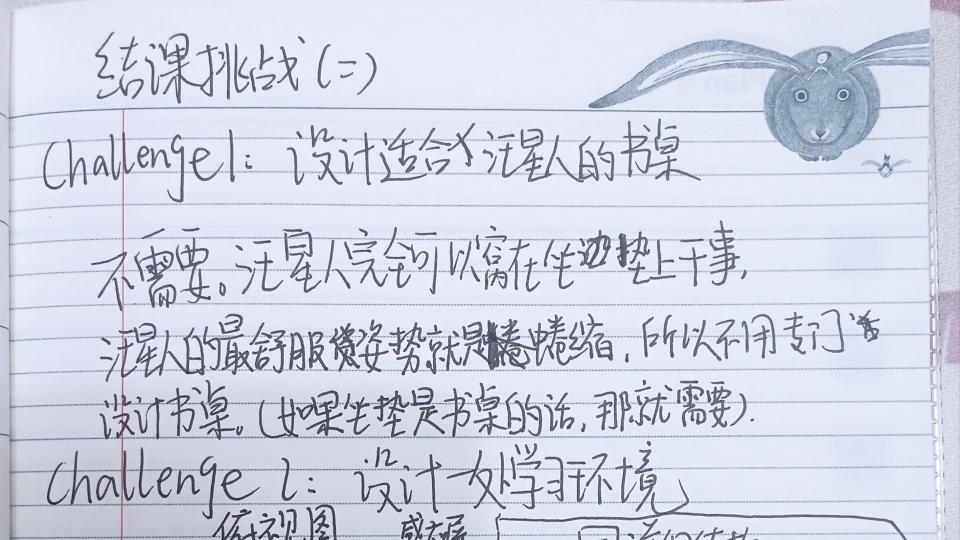 结课挑战(二)
Challenge1: 设计适合汪星人的书桌
不需要。汪星人完全可以窝在坐垫上干事,
汪星人的最舒服姿势就是蜷缩,所以不用专门
设计书桌。(如果坐垫是书桌的话,那就需要).
Challenge 2: 设计一处学习环境
俯视图